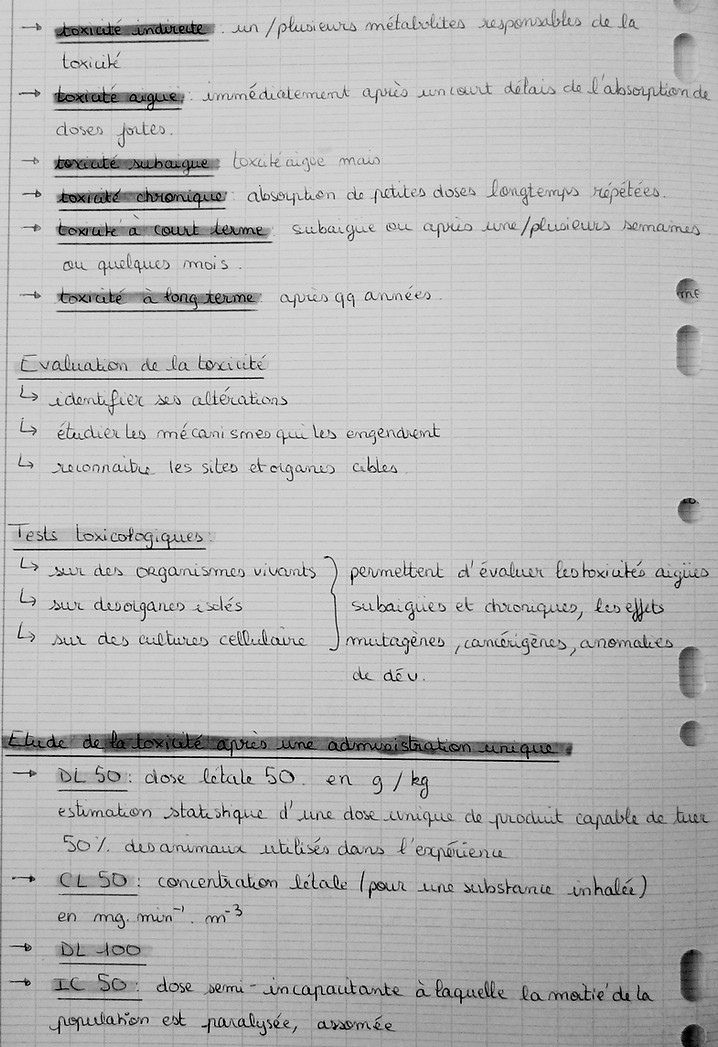 → toxicité indirecte : un/plusieurs métabolites responsables de la
toxicité
→ toxicité aigue : immédiatement après un court délais de l'absorption de
doses fortes.
→ toxicité subaigue : toxcité aigue mais
→ toxicité chronique : absorption de petites doses longtemps répétées.
→ toxicité à court terme : subaigue ou après une/plusieurs semaines
ou quelques mois.
→ toxicité à long terme : après qq années.
Evaluation de la toxicité
↳ identifier ses altérations
↳ étudier les mécanismes qui les engendrent
↳ reconnaitre les sites et organes cibles.
Tests toxicologiques :
↳ sur des organismes vivants } permettent d'évaluer les toxicités aigües
↳ sur des organes isolés subaigües et chroniques, les effets
↳ sur des cultures cellulaire mutagènes, cancérigènes, anomalies
de dév.
Etude de la toxicité après une administration unique
→ DL 50 : dose létale 50. en g/kg
estimation statistique d'une dose unique de produit capable de tuer
50% des animaux utilisés dans l'expérience
→ CL 50 : concentration létale (pour une substance inhalée)
en mg. min⁻¹. m⁻³
→ DL 100
→ IC 50 : dose semi-incapacitante à laquelle la moitié de la
population est paralysée, assomée